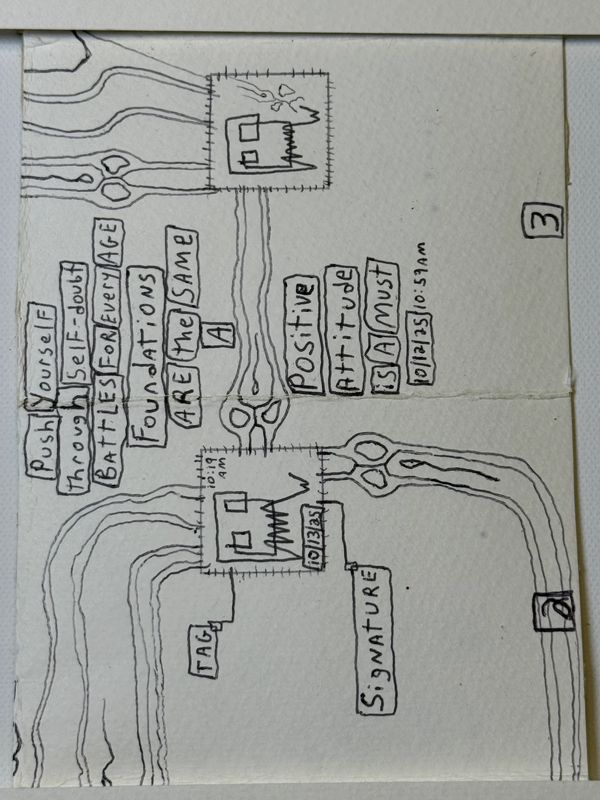 Push Yourself
through Self-doubt
BATTLES FOR Every AGE
Foundations
ARE the SAME
A
Positive
Attitude
is A Must
10/12/25 10:59AM
3
10:19
AM
10/13/25
TAG
SigNATURE
2